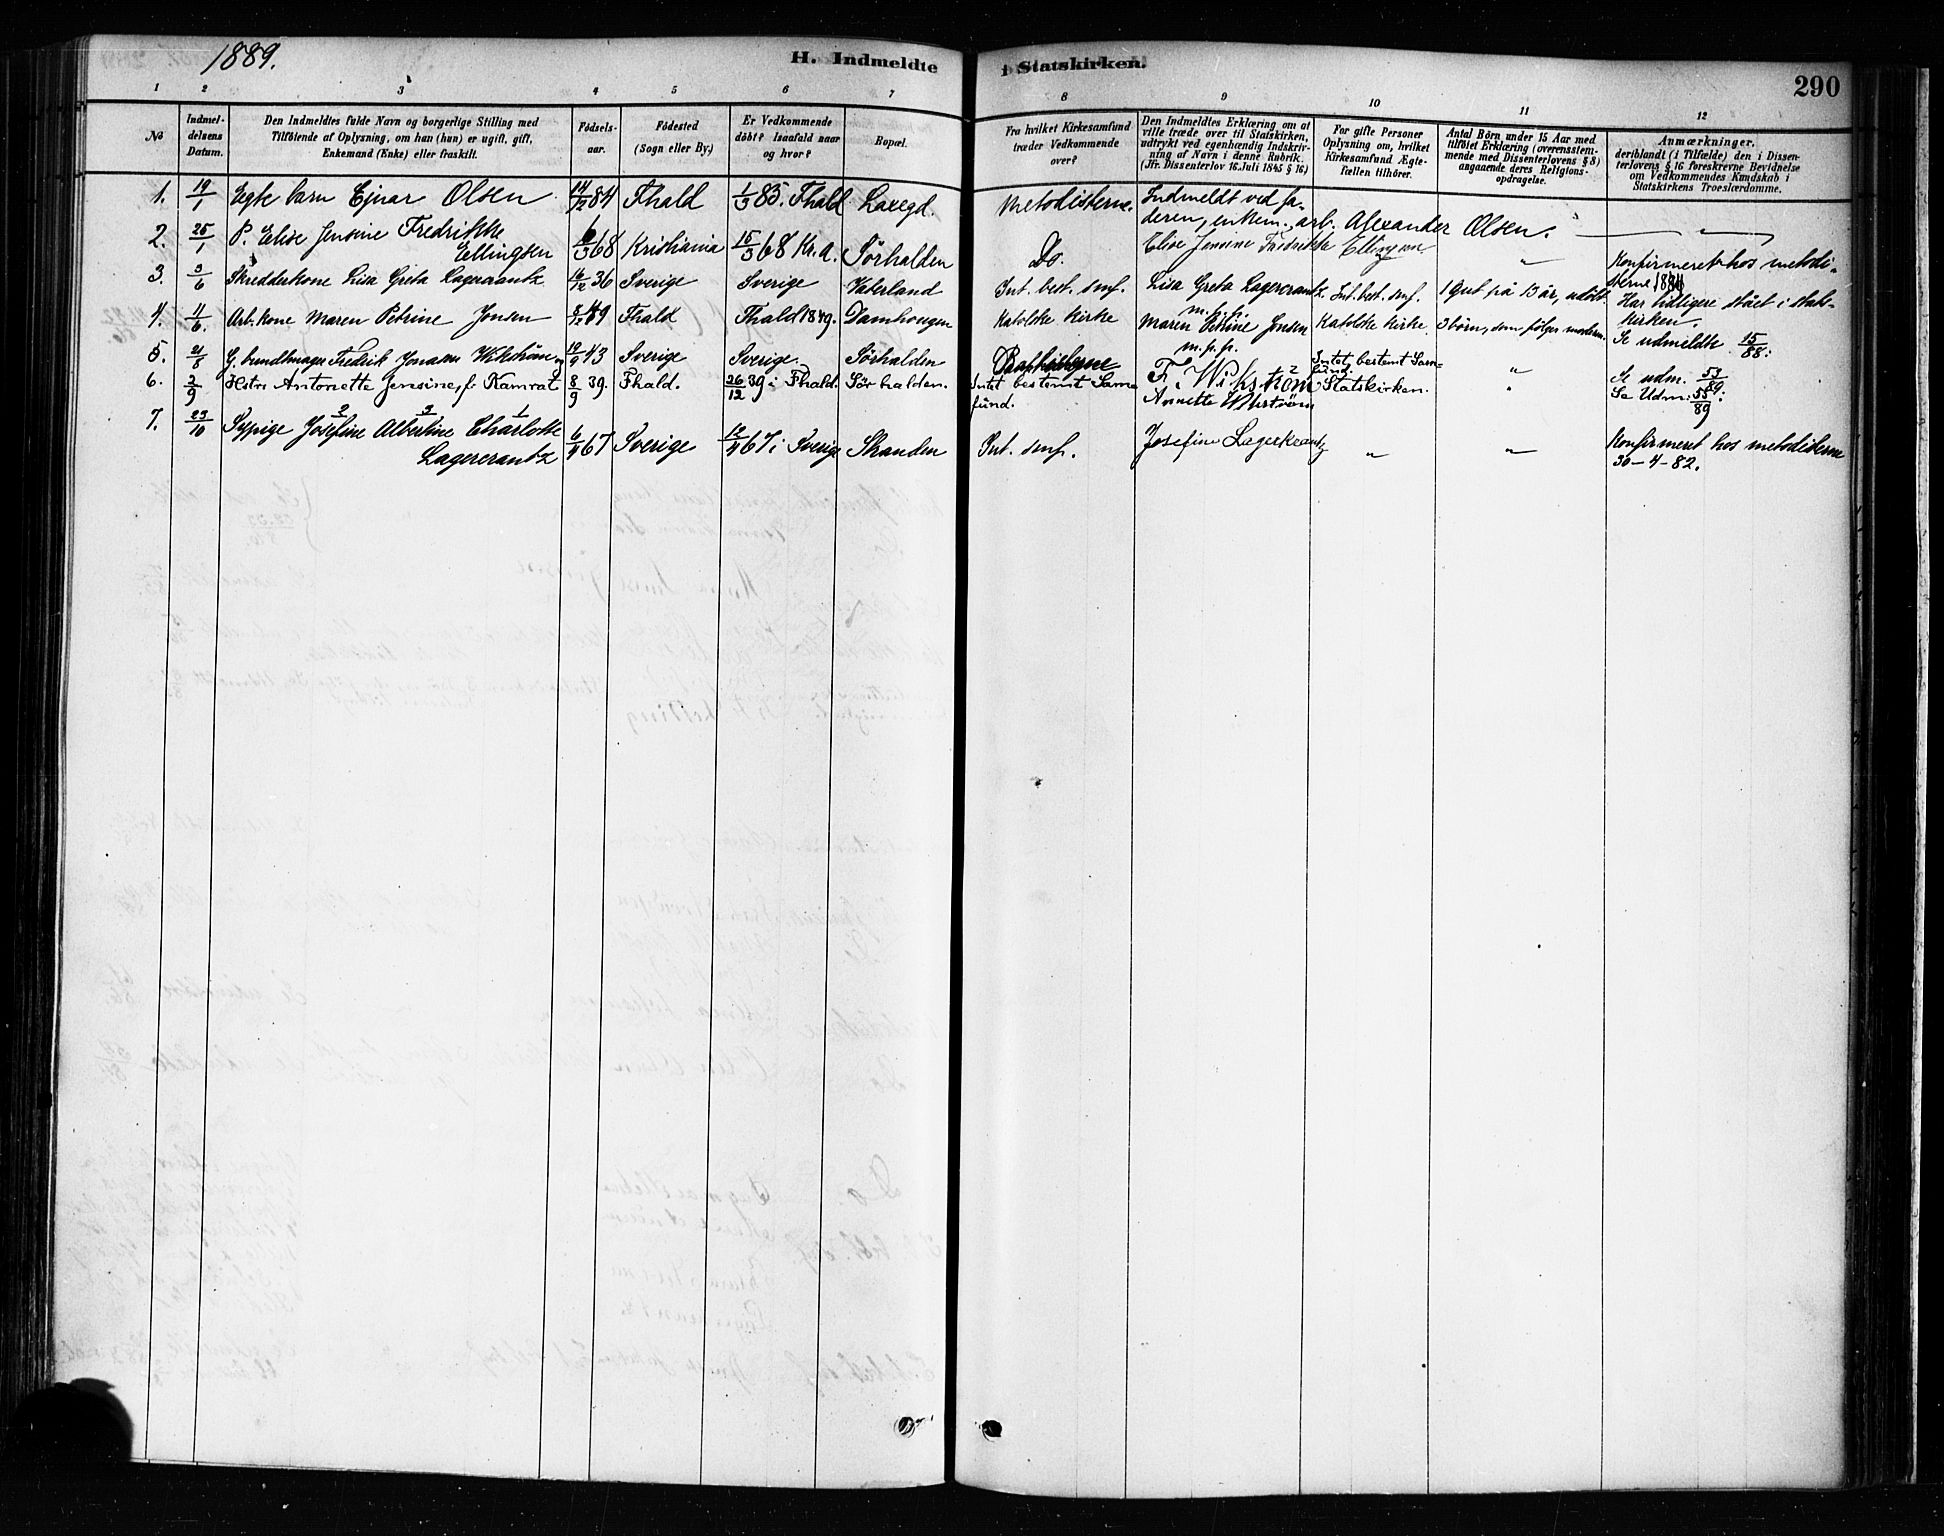 1889.
H. Indmeldte i Statskirken.
290
1 2 3 4 5 6 7 8 9 10 11 12
No
Indmel-
delsens
Datum.
Den Indmeldtes fulde Navn og borgerlige Stilling med
Tilföiende af Oplysning, om han (hun) er ugift, gift,
Enkemand (Enke) eller fraskilt.
Fødsels-
aar.
Födested
(Sogn eller By.)
Er Vedkommende
döbt? Isaafald naar
og hvor?
Bopæl.
Fra hvilket Kirkesamfund
træder Vedkommende
over?
Den Indmeldtes Erklæring om at
ville træde over til Statskirken,
udtrykt ved egenhændig Indskriv-
ning af Navn i denne Rubrik.
(Jfr. Dissenterlov 16. Juli 1845 § 16)
For gifte Personer
Oplysning om, hvilket
Kirkesamfund Ægte-
fællen tilhörer.
Antal Börn under 15 Aar med
tilföiet Erklæring (overensstem-
mende med Dissenterlovens § 8)
angaaende deres Religions-
opdragelse.
Anmærkninger,
deriblandt (i Tilfælde) den i Dissen-
terlovens § 16 foreskrevne Bevidnelse
om Vedkommendes Kundskab i
Statskirkens Troeslærdomme.
1. 19/1 Egte barn Ejnar Olsen 14/12 84 Fhald 1/3 85. Fhald Laxegd. Metodisterne. Indmeldt ved fa-
deren, enkem. arb. Alexander Olsen.
2. 25/1 P. Elise Jensine Fredrikke
Ellingsen 6/3 68 Kristiania 15/3 68 Kr.a. Sörhalden Do. Elise Jensine Fredrikke Ellingsen " Konfirmeret hos metodi-
sterne
3. 3/6 Skredderkone Lisa Greta Lagercrantz 16/12 36 Sverige Sverige Vaterland Int. best. smf. Lisa Greta Lagercrantz
m. p. p. Int. best. smf. 1 Gut på 13 år, udöbt.
4. 11/6. Arb. kone Maren Petrine Jonsen 5/12 49 Fhald Fhald 1849. Damhougen Katolske Kirke Maren Petrine Jonsen
m. p. p. Katolske Kirke. 3 börn, som følger moderen. Har tidligere stået i stats-
kirken.
Se udmeldte 15/88.
5. 21/8 G. bundtmager Fredrik Jonasen Wikström 19/9 43 Sverige Sverige. Sörhalden F. Wikström Intet bestemt Sam-
fund. " Se udm. 53/89.
6. 2/9 Hstr. Antonette Jensine, f. Kamrat 8/9 39. Fhald. 26/12 39 i Fhald. Sörhalden. Intet bestemt Sam-
fund. Annette Wikström Statskirken. " Se Udm: 55/89
7. 23/10 Sypige Josefine Albertine Charlotte
Lagercrantz 6/4 67 Sverige 12/4 67 i Sverige Stranden Int. smf. Josefine Lagerkrantz " " Konfirmeret hos metodisterne
30-4-82.